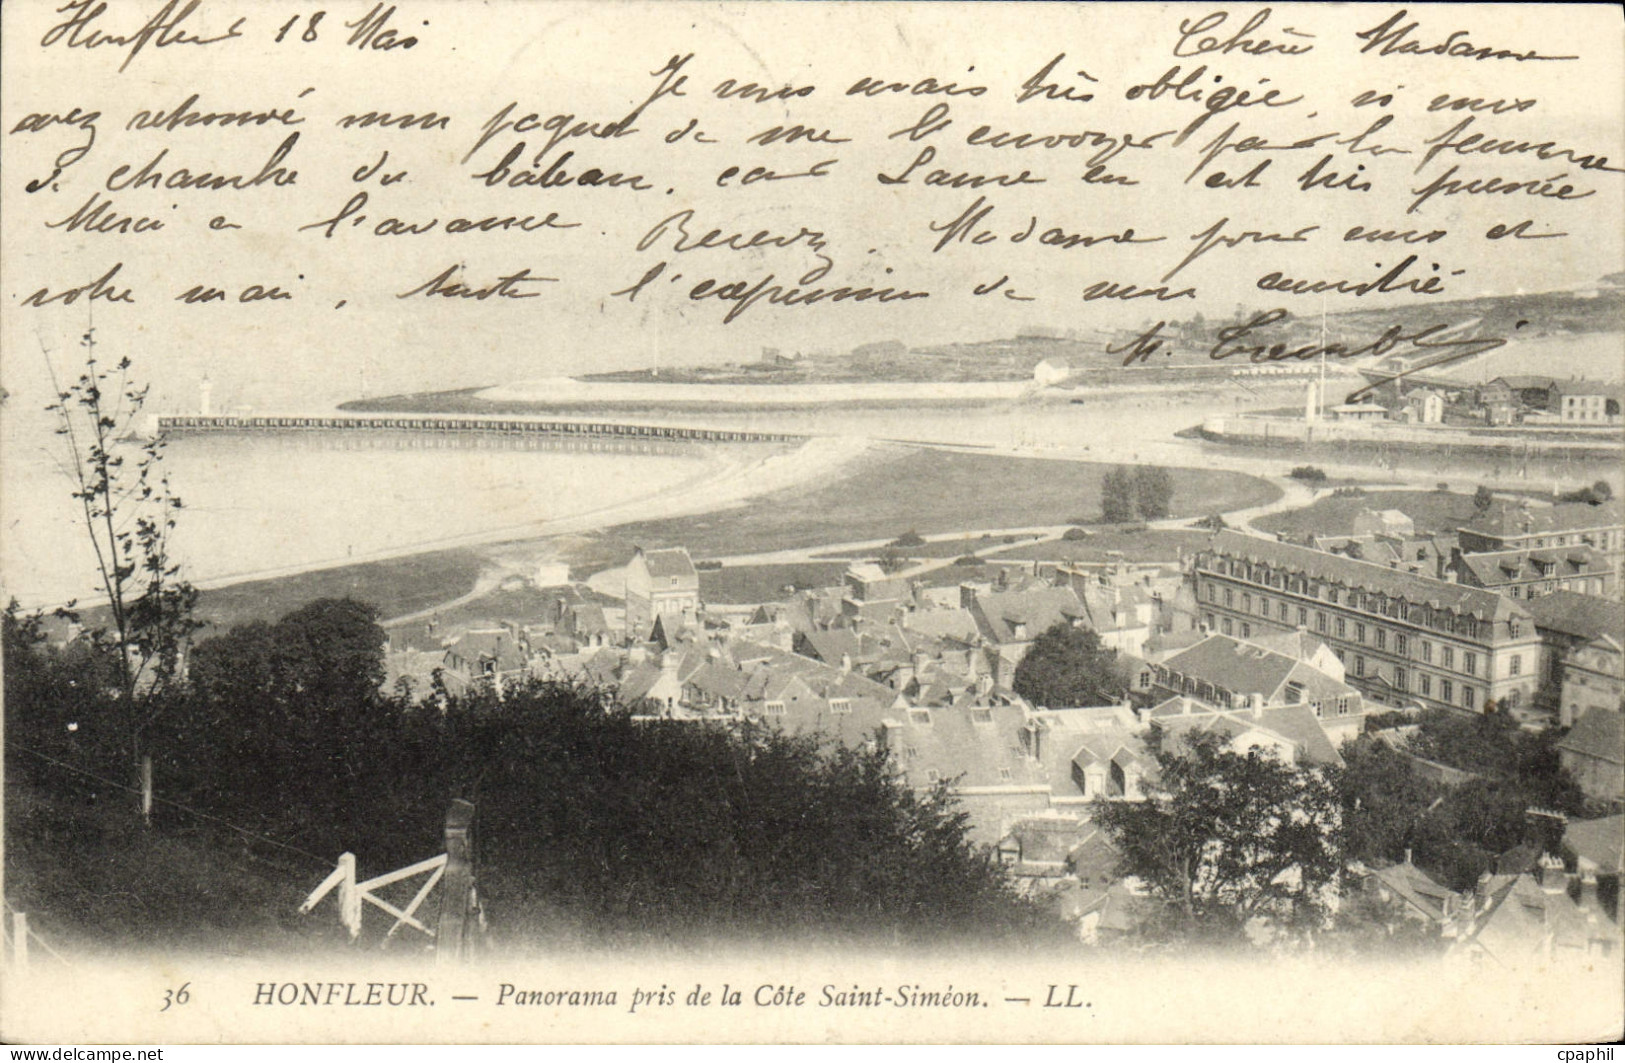 Honfleur 18 Mai
Chère Madame
Je vous serais très obligée, si vous
avez retrouvé mon paquet de me l'envoyer par la femme
de chambre du bateau, car Lame en est très pressée
Merci à l'avance. Recevez, Madame pour vous et
votre mari, toute l'expression de mon amitié
M. Trembl
36 HONFLEUR. — Panorama pris de la Côte Saint-Siméon. — LL.
delcampe.net
cpaphil